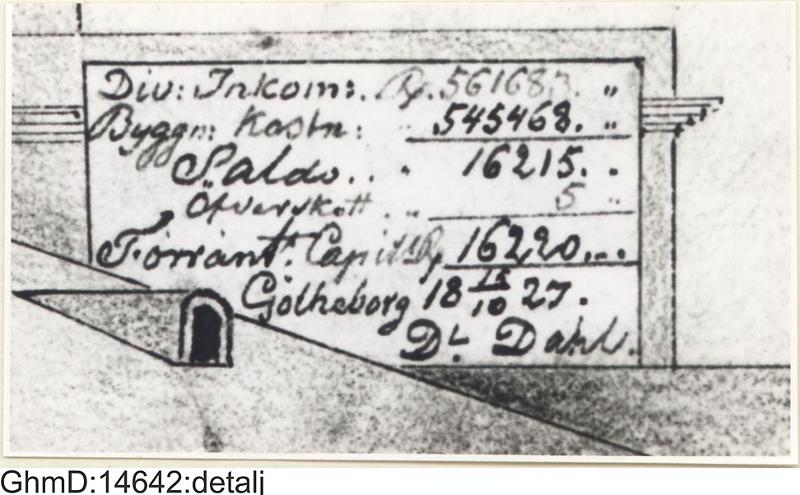 Div: Inkom:. Rg. 561683. "
Byggn: Kostn: " 545468. "
Saldo. . . 16215. .
Öfverskott . " 5 "
Förränt. Capit. Rg 16220...
Götheborg 18 15/10 27.
D. Dahl.
GhmD:14642:detalj